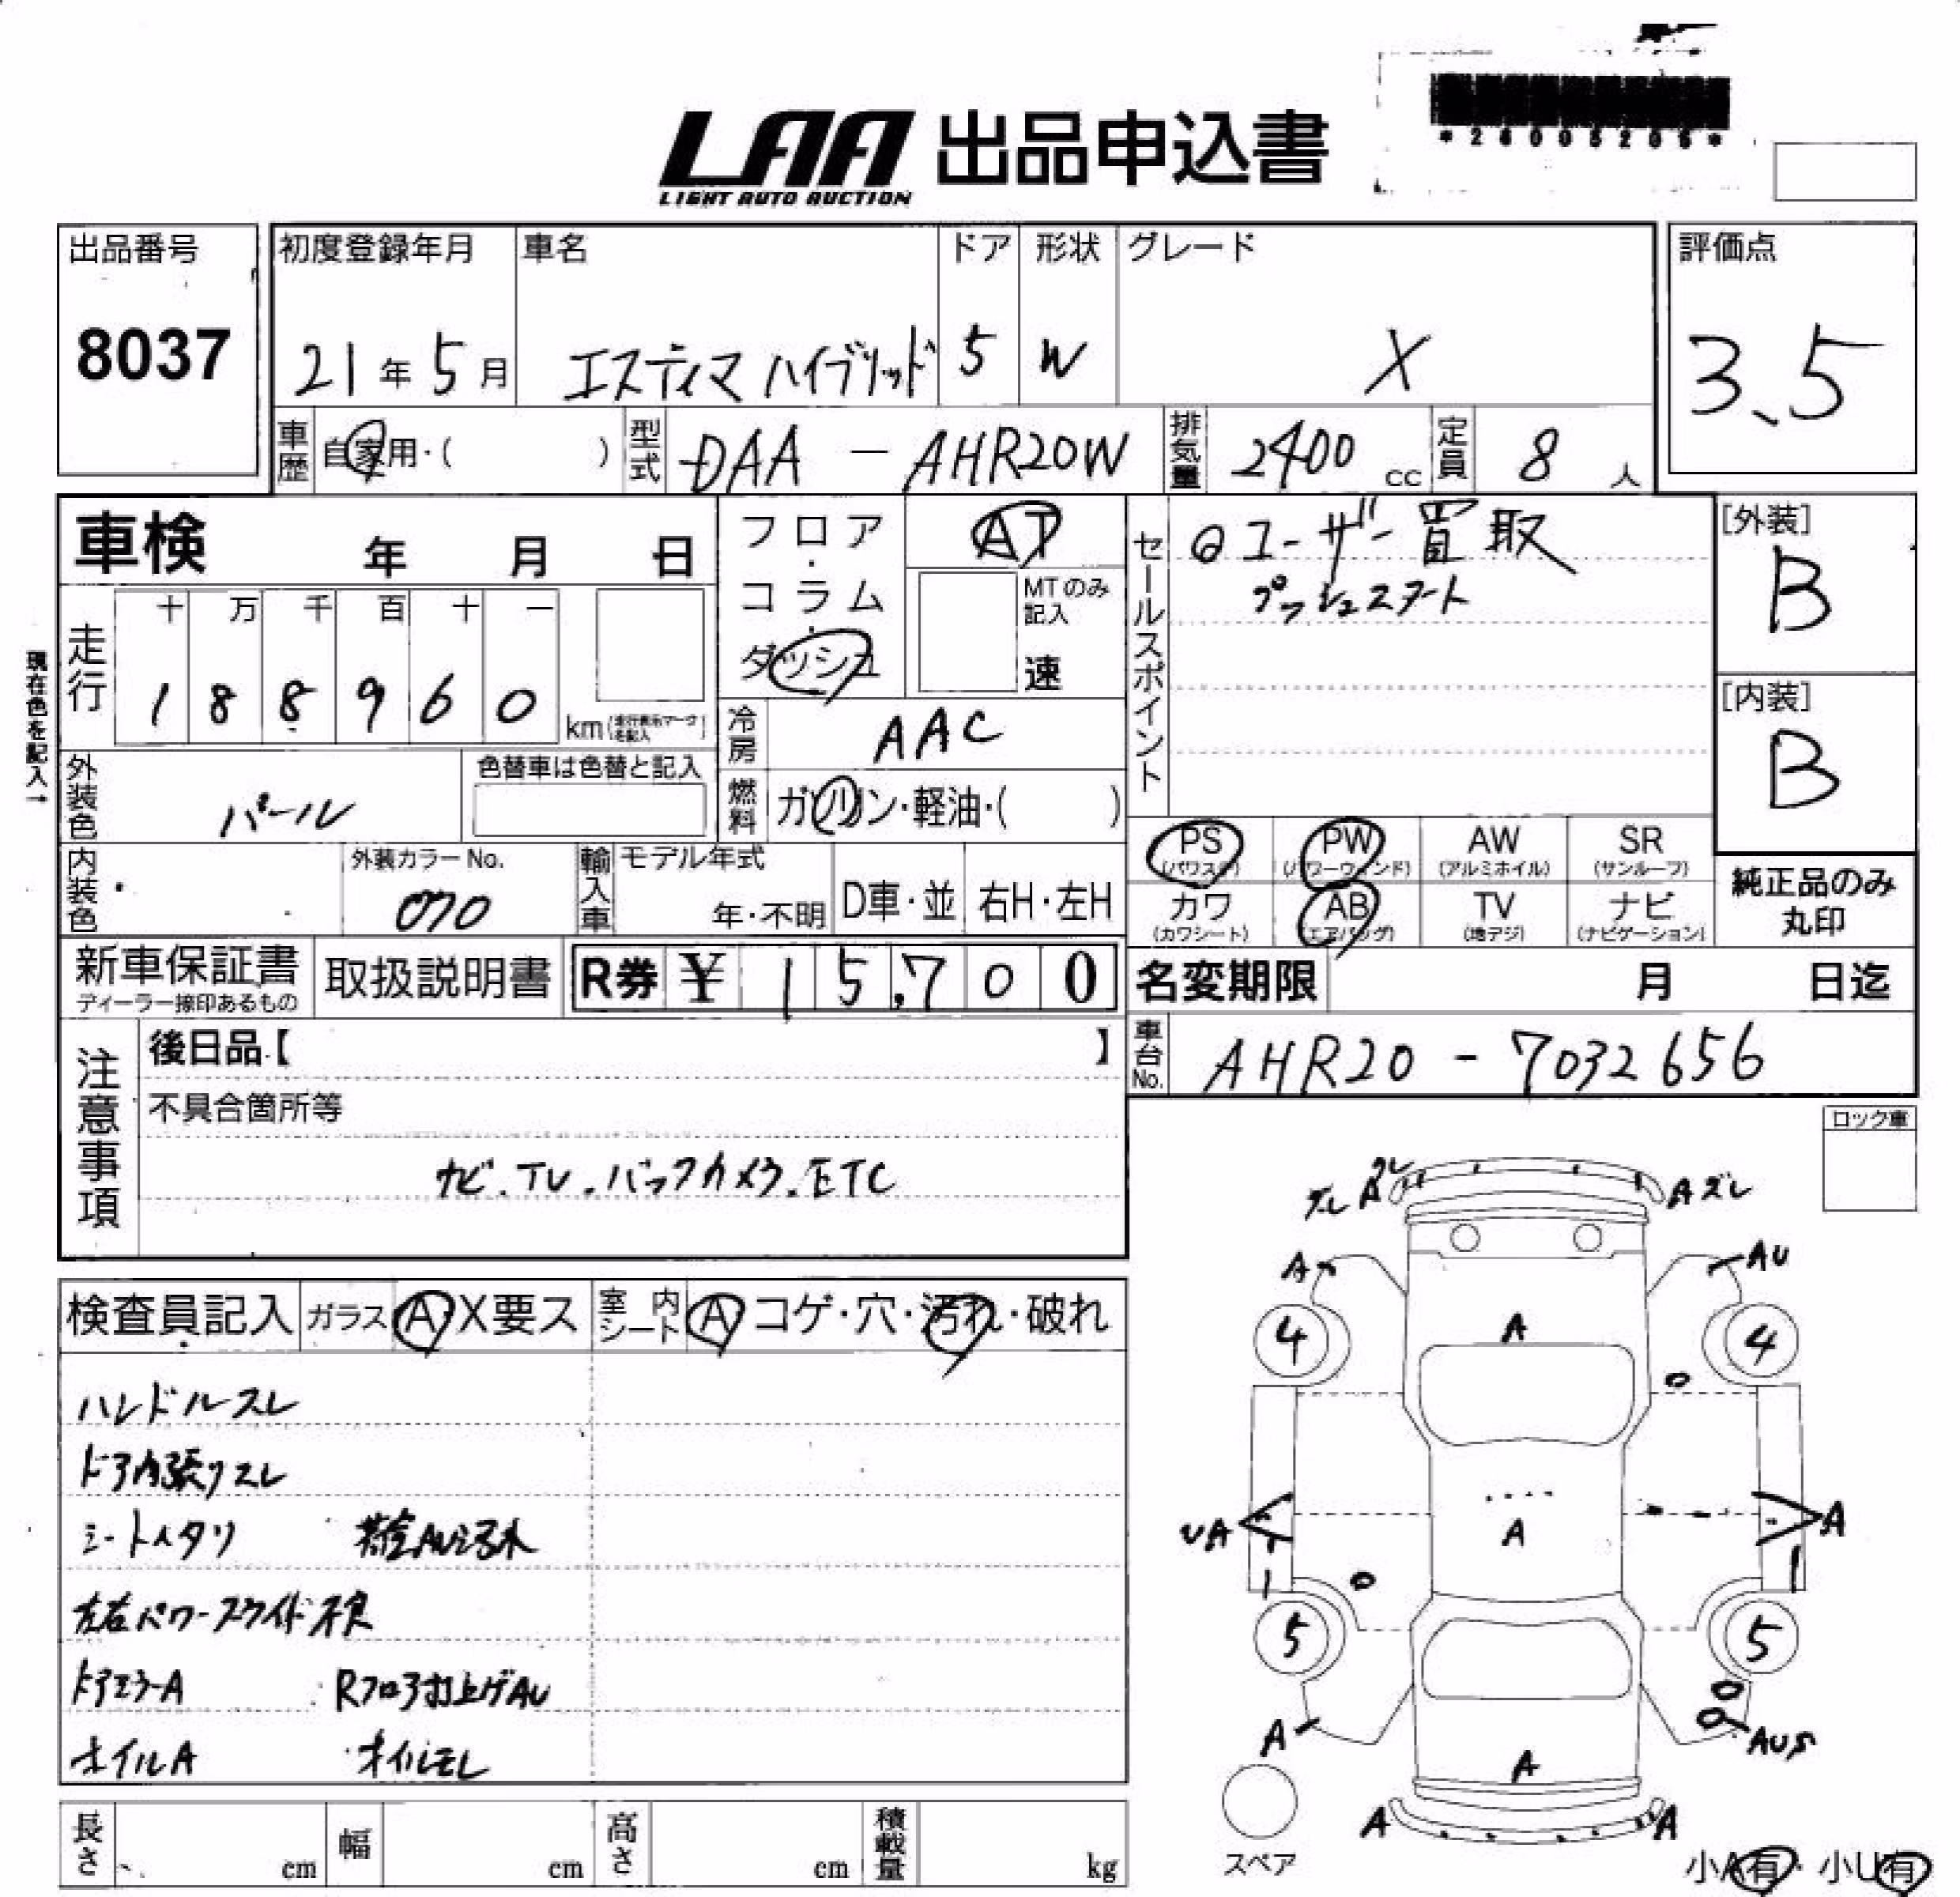 LAA 出品申込書
LIGHT AUTO AUCTION
出品番号
8037
初度登録年月 車名 ドア 形状 グレード
21年 5月 エスティマ ハイブリッド 5 W X
評価点
3.5
車歴 自家用・( ) 型式 DAA - AHR20W 排気量 2400 cc 定員 8 人
車検 年 月 日
フロア・コラム・ダッシュ
AT
MTのみ記入
速
セールスポイント
◎ユーザー買取
プッシュスタート
[外装]
B
[内装]
B
現在色を記入→
走行
十 万 千 百 十 一
1 8 8 9 6 0 km
冷房 AAC
外装色 パール
色替車は色替と記入
燃料 ガソリン・軽油・( )
PS PW AW SR
(パワステ) (パワーウィンド) (アルミホイル) (サンルーフ)
カワ AB TV ナビ
(カワシート) (エアバッグ) (地デジ) (ナビゲーション)
純正品のみ
丸印
内装色
外装カラーNo.
070
輸入車 モデル年式
年・不明 D車・並 右H・左H
新車保証書
ディーラー捺印あるもの
取扱説明書
R券 ¥ 15,700
名変期限 月 日迄
車台No. AHR20 - 7032656
注意事項
後日品【 】
不具合箇所等
ナビ.TV.バックカメラ.ETC
ロック車
検査員記入 ガラス A X要ス 室内シート A コゲ・穴・汚れ・破れ
ハンドルスレ
ドア内張リスレ
シートヘタリ
左右パワースライド不良
ドアミラーA Rフロア打上ゲAU
ホイルA オイルモレ
ズレ A A ズレ
A AU
4 A 4
UA A A
5 5
A AUS
A
A A
スペア
小A有・小U有
長さ cm 幅 cm 高さ cm 積載量 kg